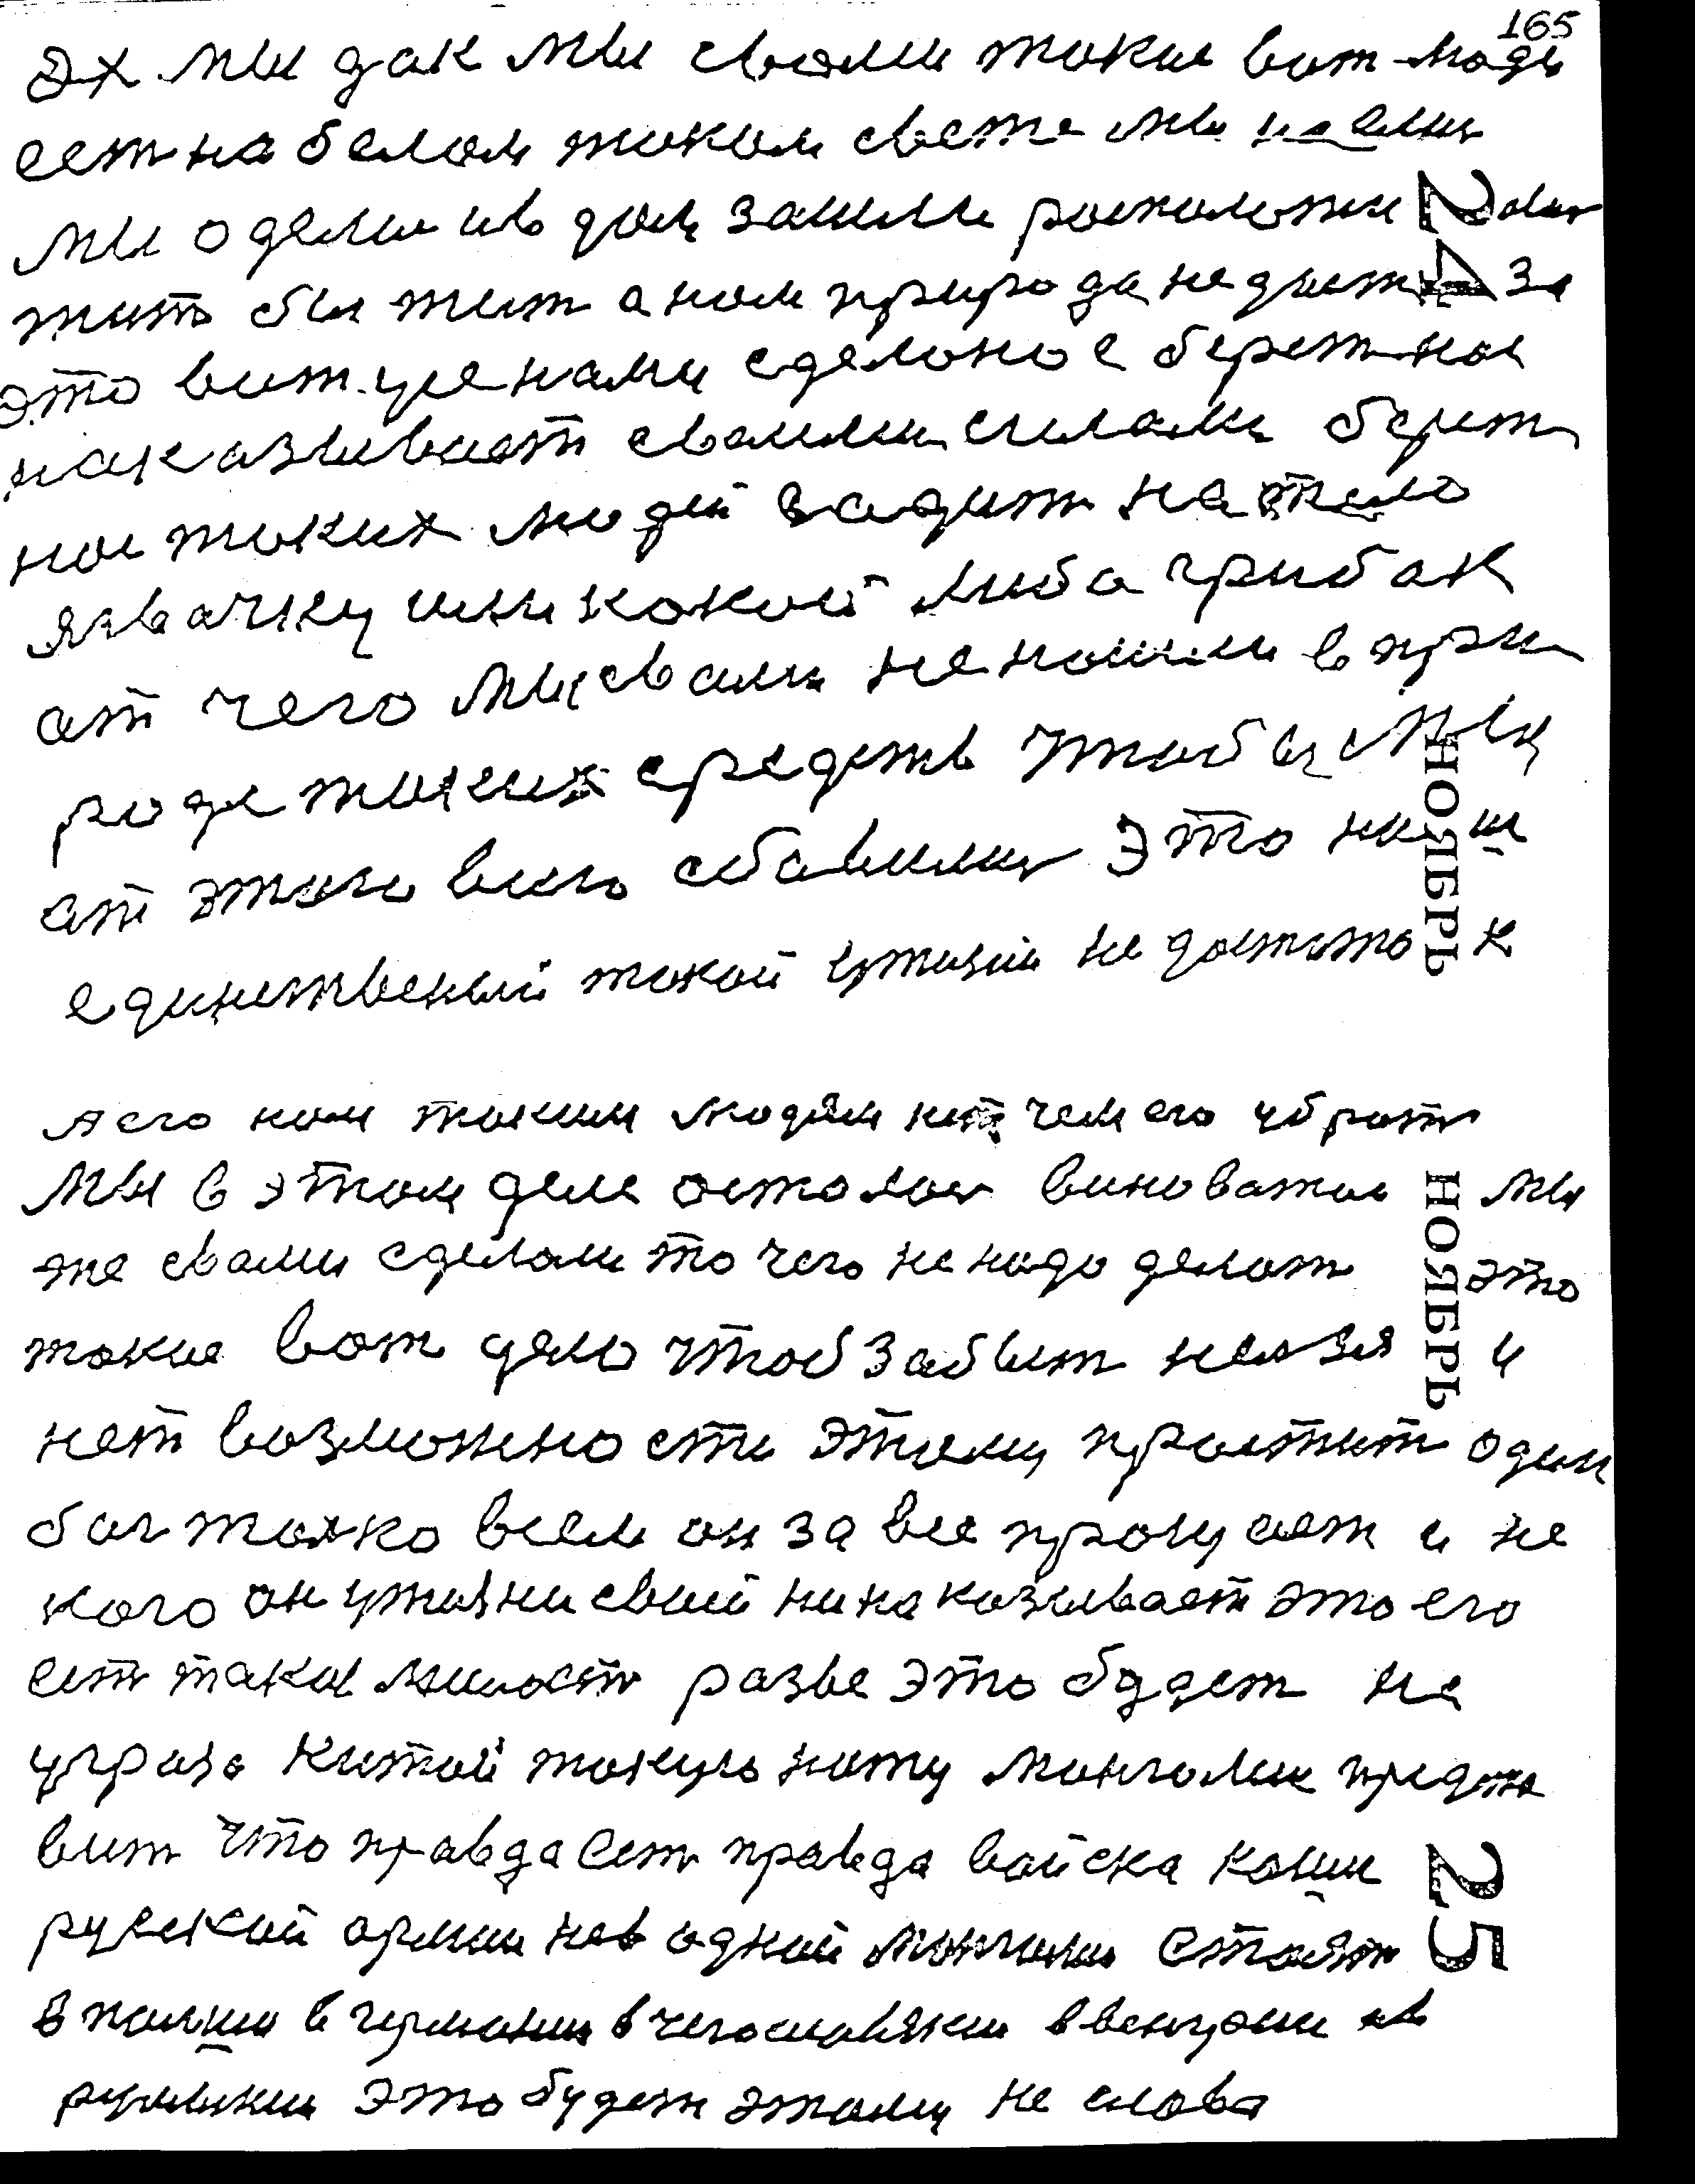 165
Эх мы дак мы свами такие вот люди
ест на белом таком свете мы наелис
мы оделис и в дом зашли роспологилис
жит бы жит а нам природа не дает за
это вит уже нами сделоное берет нас
наказывает своими силами берет
нас таких людей садит на тело
язвачку или какой либа грибок
ат чего мы свами не нашли в при
роде таких средств чтобы мы
ат этого всего избавилис это наш
единственый такой в жизни недостато к
а его нам таким людям нет чем его убрат
мы в этом деле осталис виноватые мы
же свами сделали то чего не надо делат это
такие вот дело чтоб забыт нелзя и
нет возможности этому простит один
бог толко всем он за все прощает и не
кого он у жизни своей ни наказывает это его
ест такая милост разве это будет не
угроза китай такую ноту монголии предта
вит что правда ест правда войска наши
руской армии не в одной монголии стоят
в полши в германии в чегословякии в венгрии и в
румынии это будет этому не слова
24
НОЯБРЬ
НОЯБРЬ
25